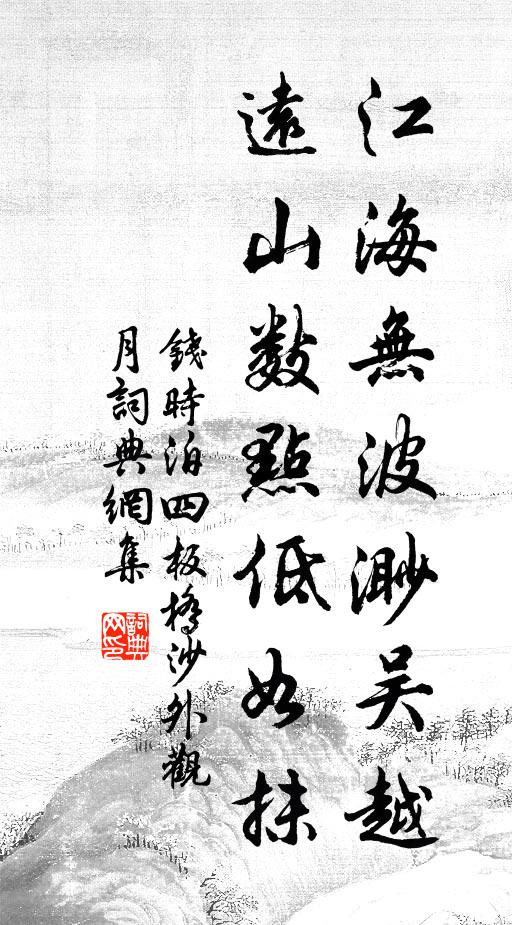 江海無波渺吳越
遠山數點低如抹
錢時泊四板橋沙外觀
月詞典網集
詞典網印